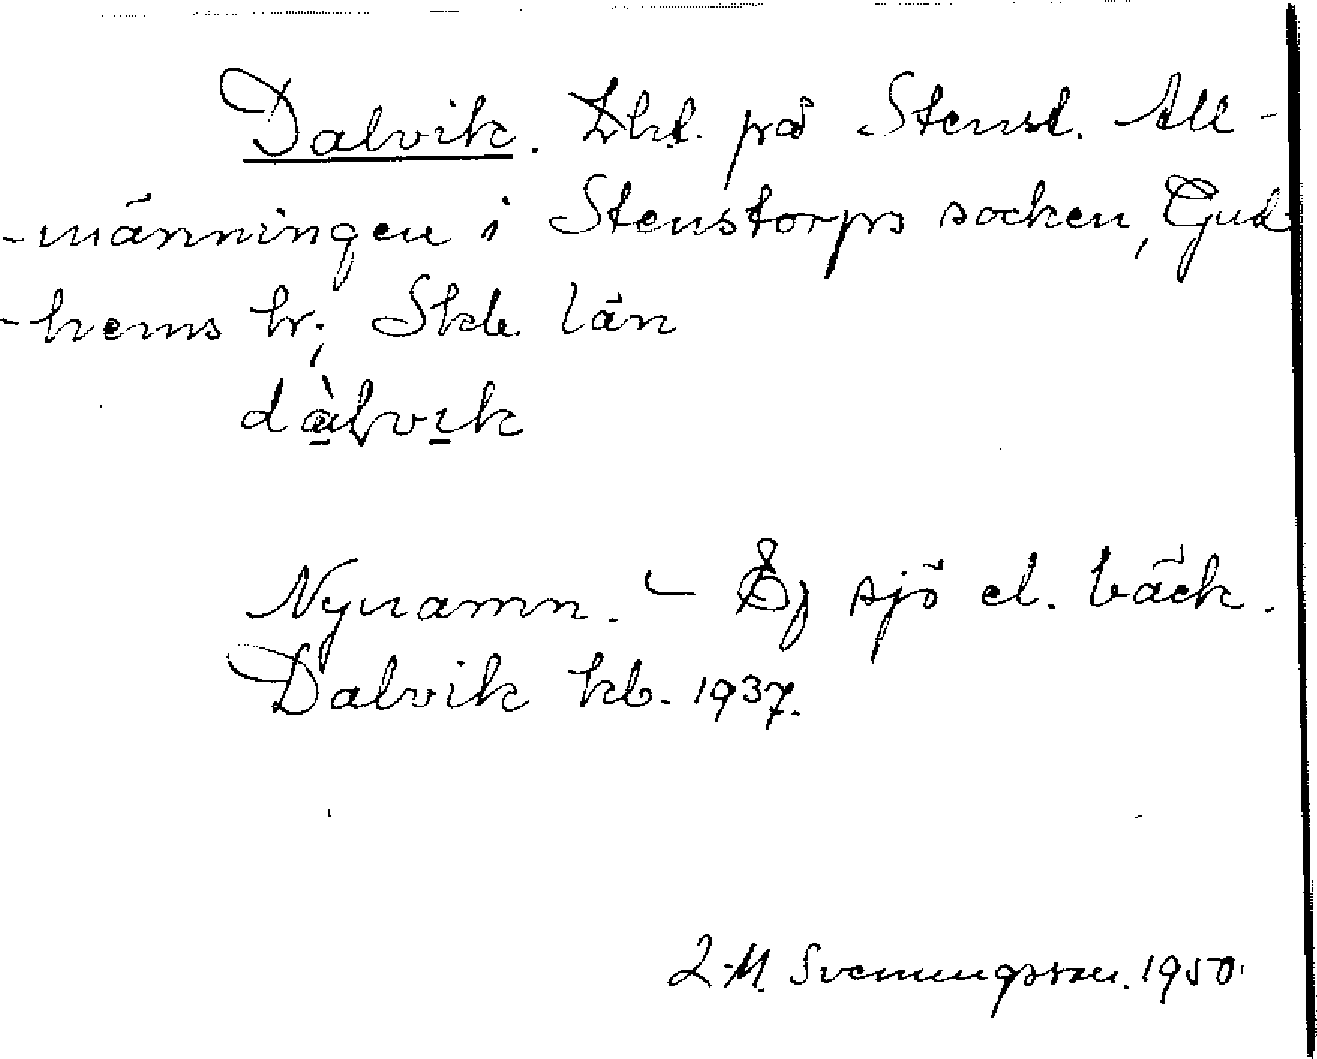 Dalvik. Lht. på Stenst. All-
-männingen i Stenstorps socken, Gud-
-hems hr; Skb. län
dàlvik
Nynamn. – Ej sjö el. bäck.
Dalvik kb. 1937.
L-M. Svenningsson. 1950.